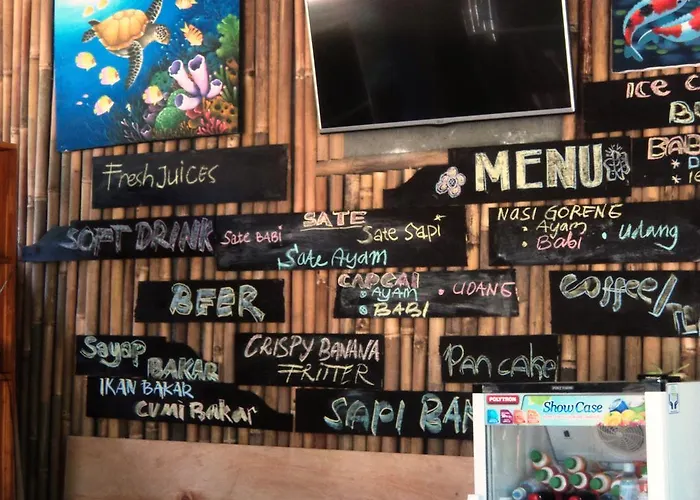 ICE
Fresh Juices
MENU
BAB
SOFT DRINK
SATE
Sate BABI
Sate Sapi
Sate Ayam
NASI GORENE
Ayam
Babi
Udang
BEER
CAPCAI
AYAM
BABI
UDANG
Coffee/
Sayap BAKAR
IKAN BAKAR
CUMI BaKar
CRISPY BANANA
FRITTER
Pan Cake
SAPI
POLYTRON
Show Case